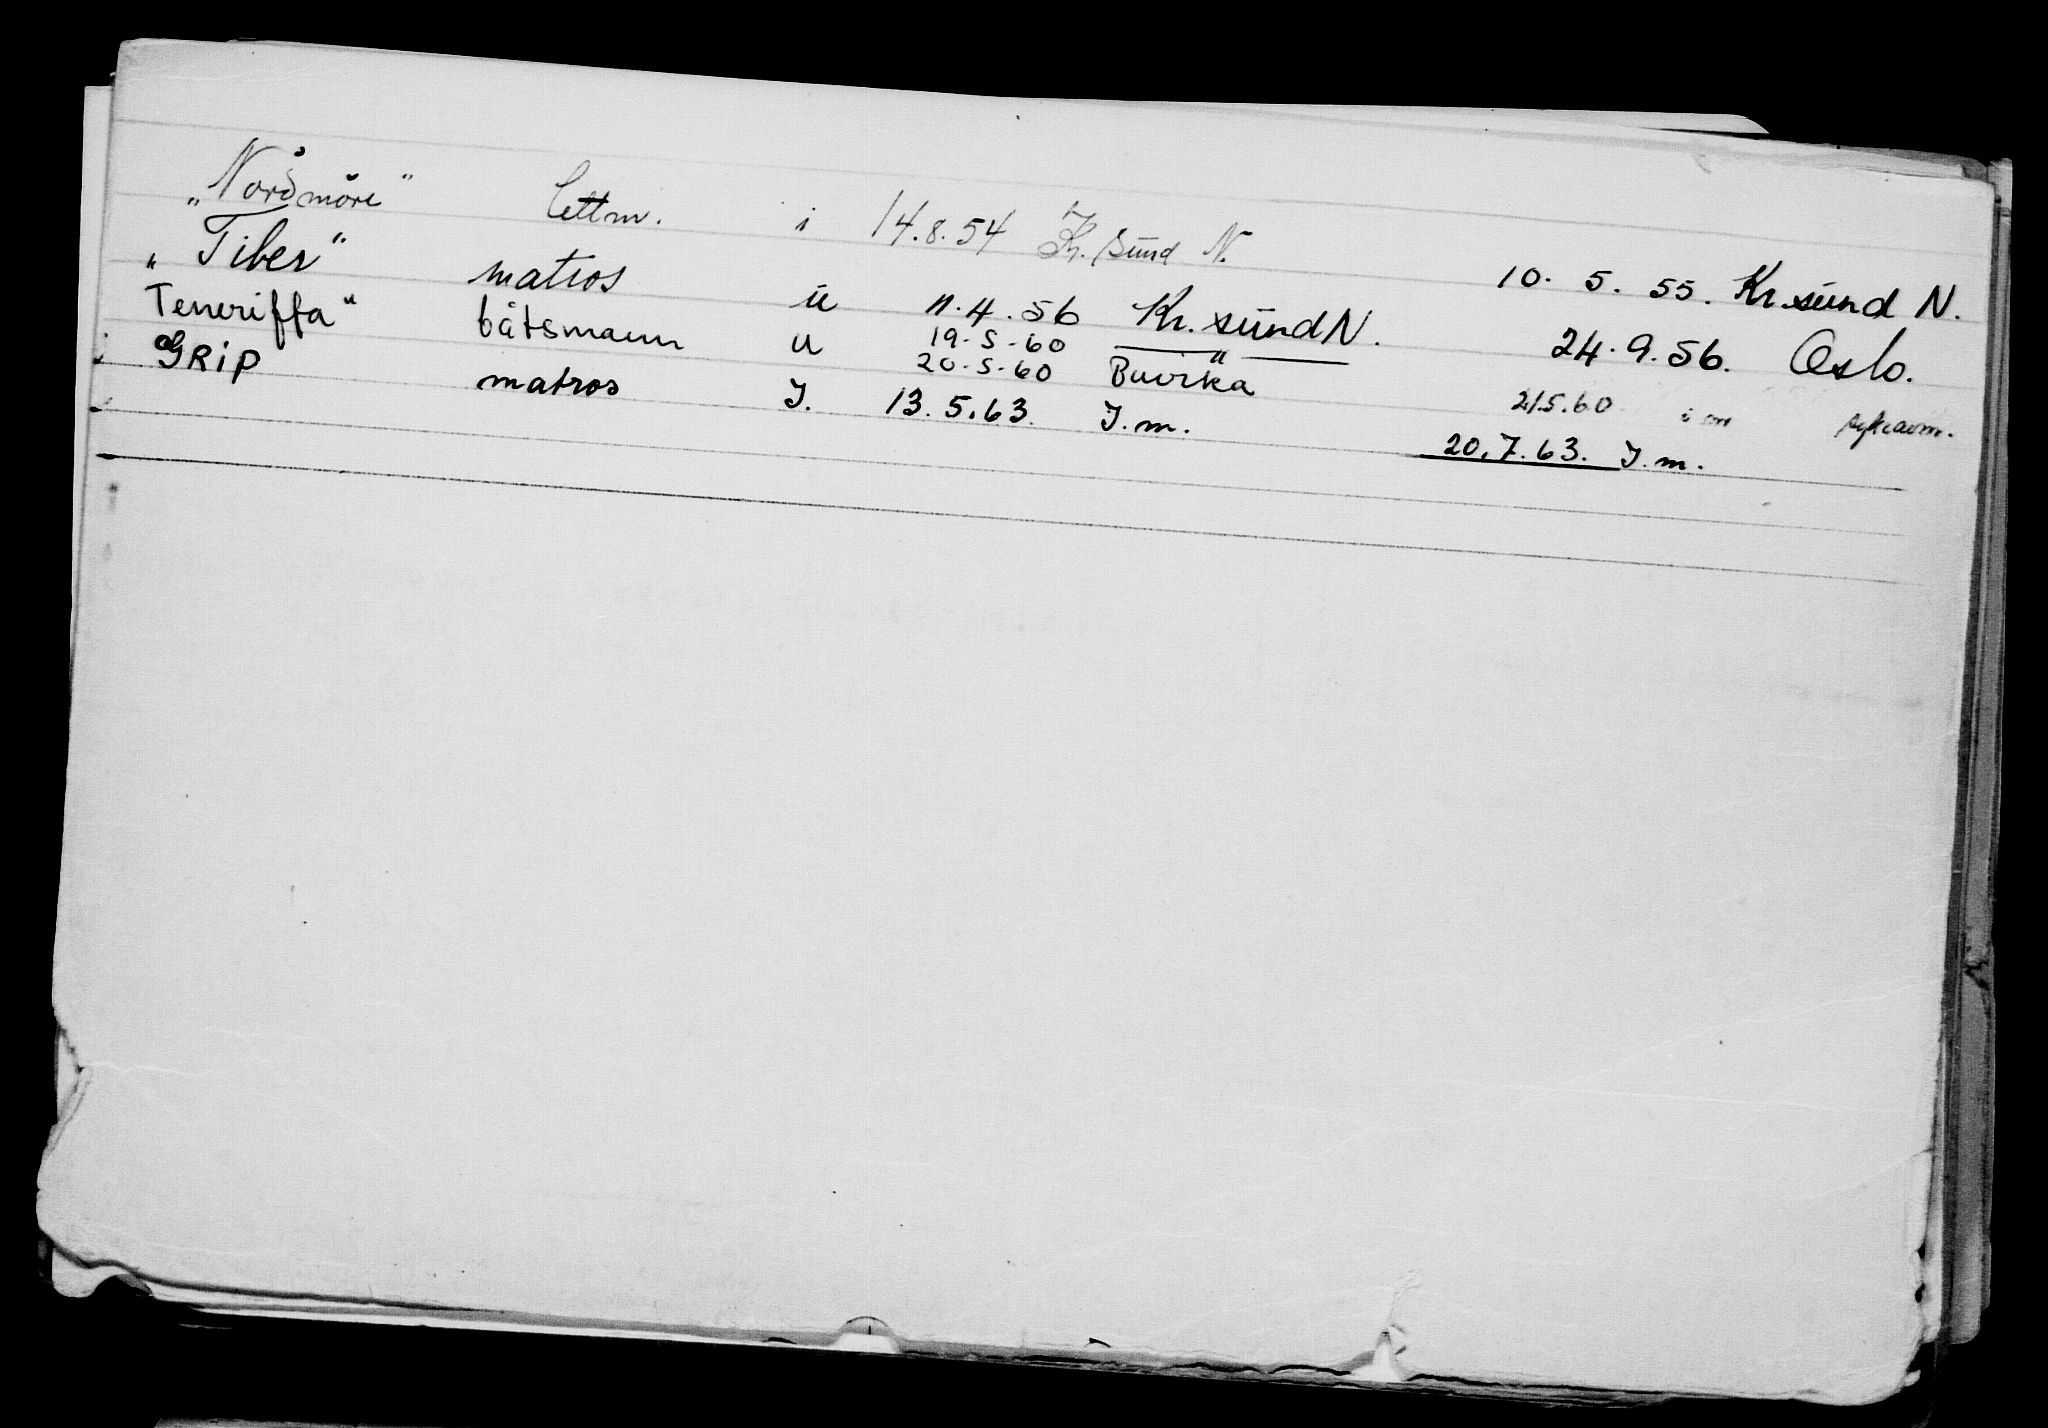 „Nordmöre“ lettm. i 14.8.54 Kr.sund N. 10. 5. 55. Kr.sund N.
„Tiber“ matros u 11.4.56 Kr. sund N. 24.9.56. Oslo.
Teneriffa“ båtsmann u 19.5.60 "
20.5.60 Buvika 21.5.60 i sm
GRIP matros J. 13.5.63. J.m. 20.7.63. J.m.